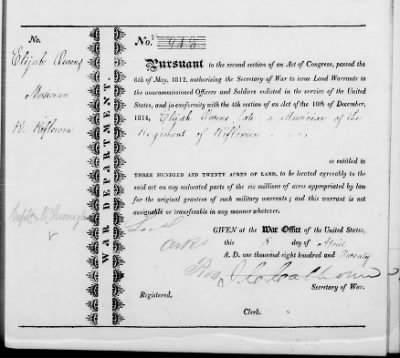 No.
Elijah Owens
Musician
R. Riflemen
WAR DEPARTMENT.
No.
Pursuant to the second section of an Act of Congress, passed the
6th of May, 1812, authorising the Secretary of War to issue Land Warrants to
the uncommissioned Officers and Soldiers enlisted in the service of the United
States, and in conformity with the 4th section of an Act of the 10th of December,
1814, Elijah Owens, late a Musician of the
Regiment of Riflemen
is entitled to
THREE HUNDRED AND TWENTY ACRES OF LAND, to be located agreeably to the
said act on any unlocated parts of the six millions of acres appropriated by law
for the original grantees of such military warrants; and this warrant is not
assignable or transferable in any manner whatever.
GIVEN at the War Office of the United States,
this 8 day of April
A. D. one thousand eight hundred and Twenty
J. C. Calhoun
Secretary of War.
Registered.
Clerk.